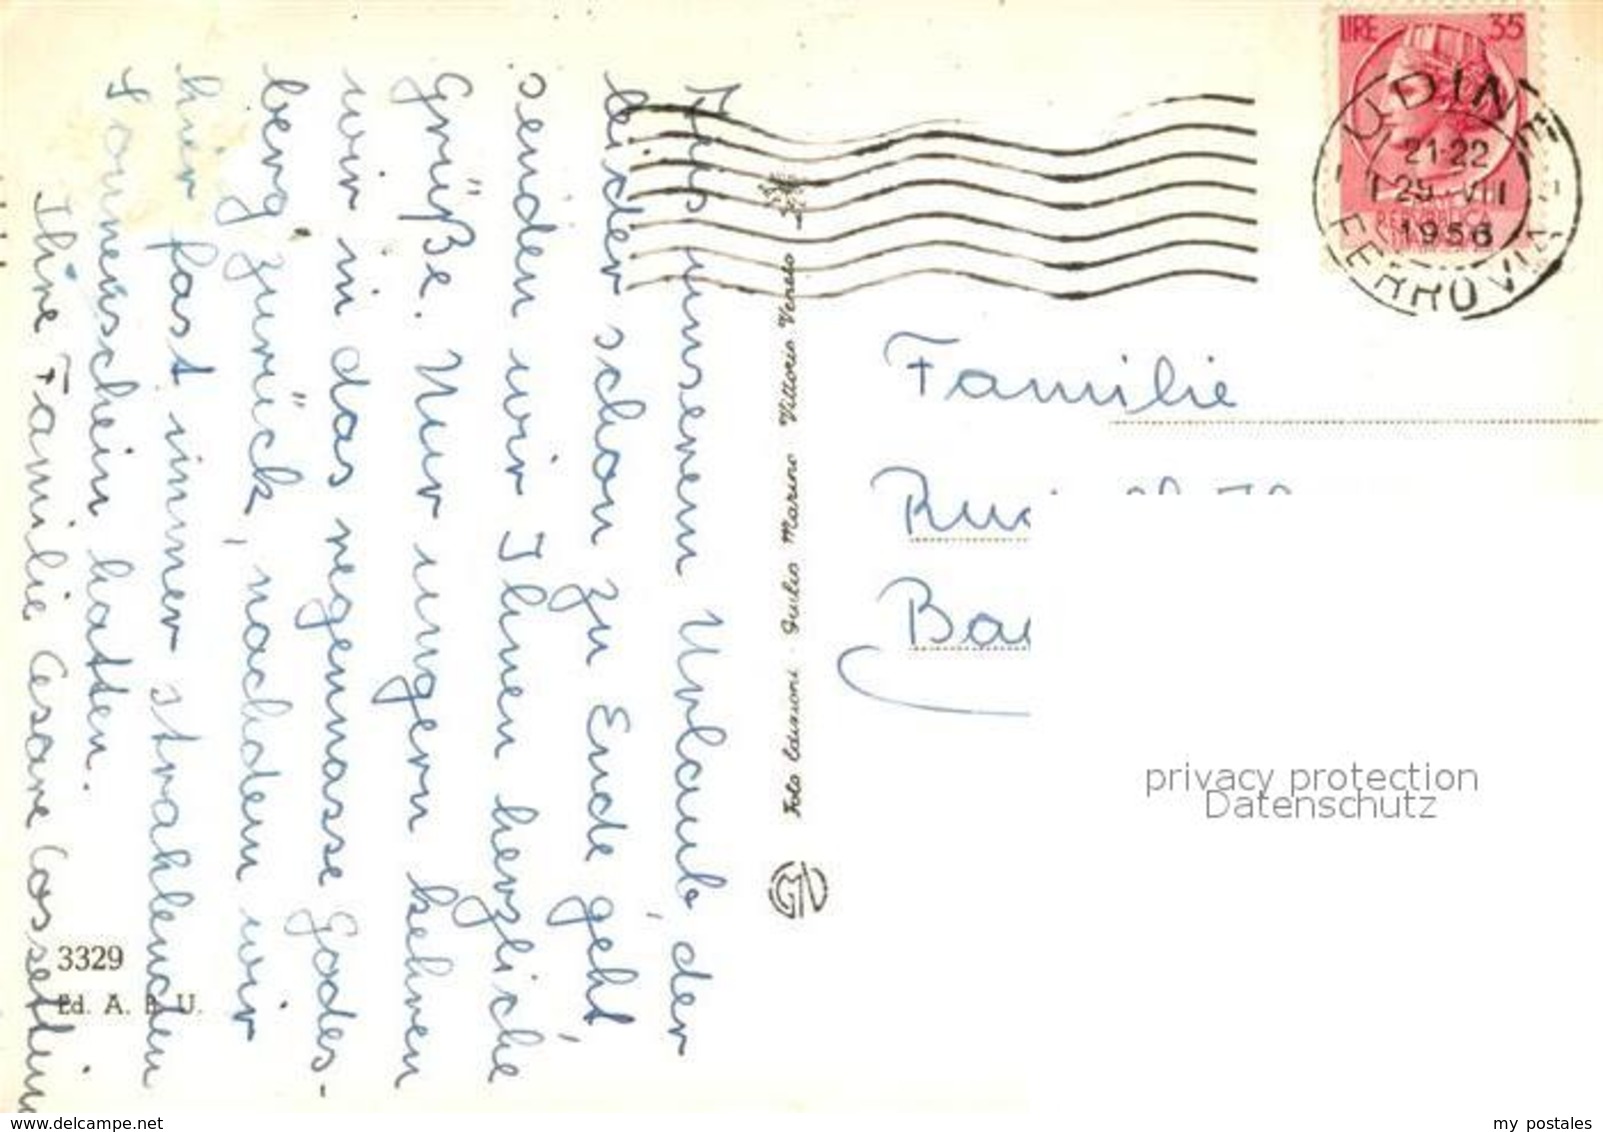 Aus unserem Urlaub, der
leider schon zu Ende geht,
senden wir Ihnen herzliche
Grüße. Nur ungern kehren
wir in das regennasse Godes-
berg zurück, nachdem wir
hier fast immer strahlenden
Sonnenschein hatten.
Ihre Familie Cesare Cossettini
3329
Ed. A. B. U.
Foto Edizioni - Giulio Marino Vittorio Veneto
LIRE 35
UDINE
21-22
29. VIII
1956
FERROVIA
Familie
privacy protection
Datenschutz
www.delcampe.net
my postales